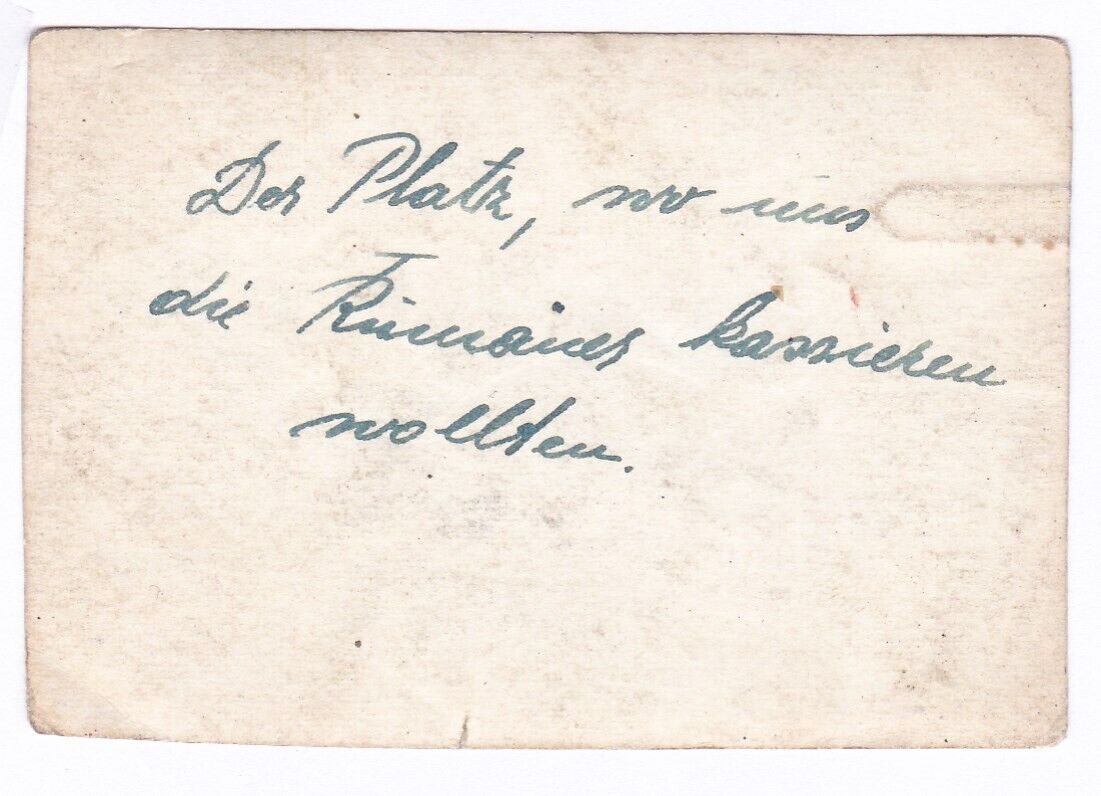 Der Platz, wo uns
die Rumänier kassieren
wollten.